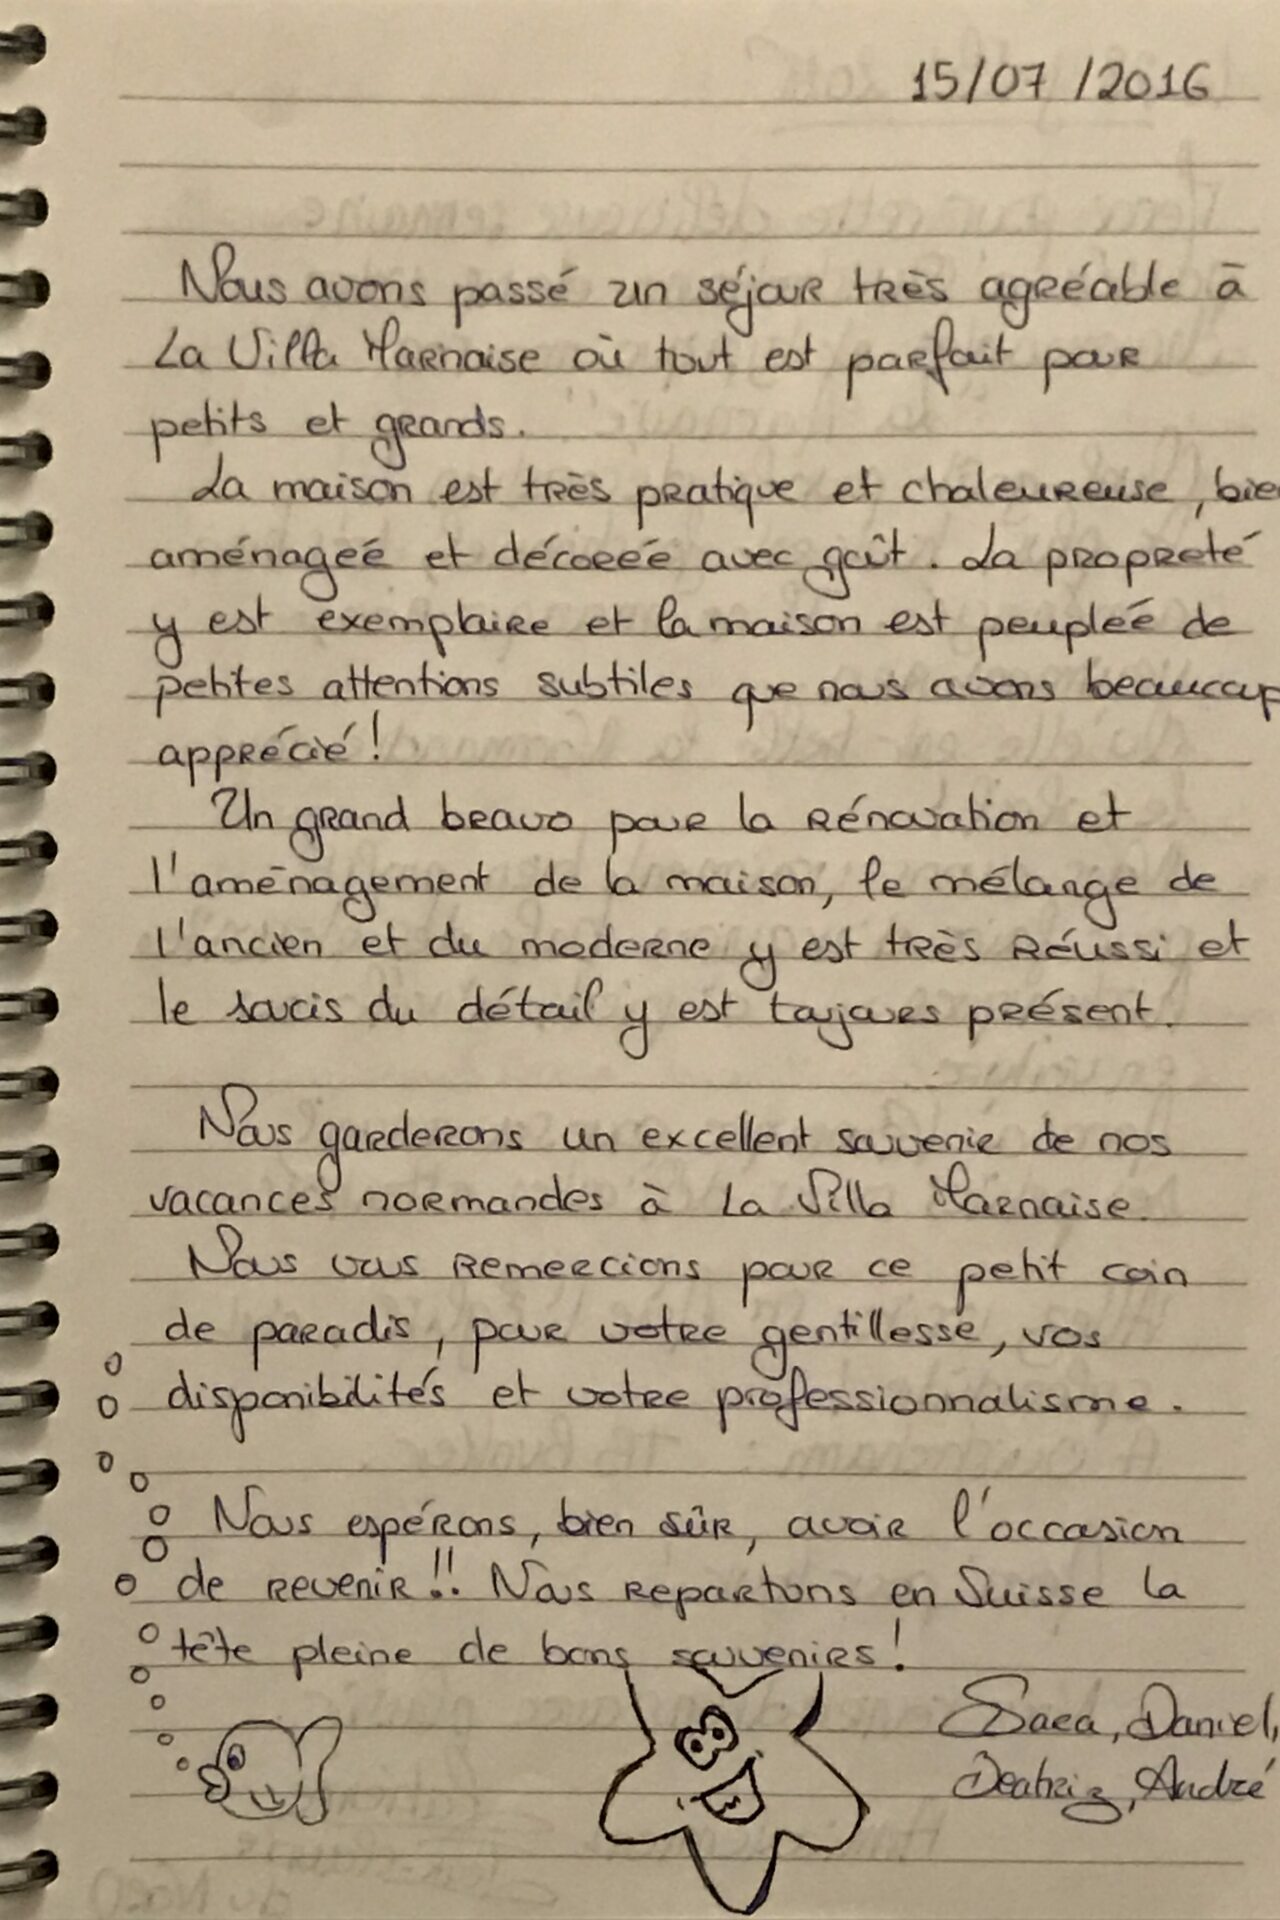 15/07/2016
Nous avons passé un séjour très agréable à
La Villa Harnaise où tout est parfait pour
petits et grands.
La maison est très pratique et chaleureuse, bien
aménageé et décoreé avec goût. La propreté
y est exemplaire et la maison est peupleé de
petites attentions subtiles que nous avons beaucoup
apprécié !
Un grand bravo pour la rénovation et
l'aménagement de la maison, le mélange de
l'ancien et du moderne y est très réussi et
le soucis du détail y est toujours présent.
Nous garderons un excellent souvenir de nos
vacances normandes à La Villa Harnaise.
Nous vous remercions pour ce petit coin
de paradis, pour votre gentillesse, vos
disponibilités et votre professionnalisme.
Nous espérons, bien sûr, avoir l'occasion
de revenir !! Nous repartons en Suisse la
tête pleine de bons souvenirs !
Sara, Daniel,
Beatriz, André